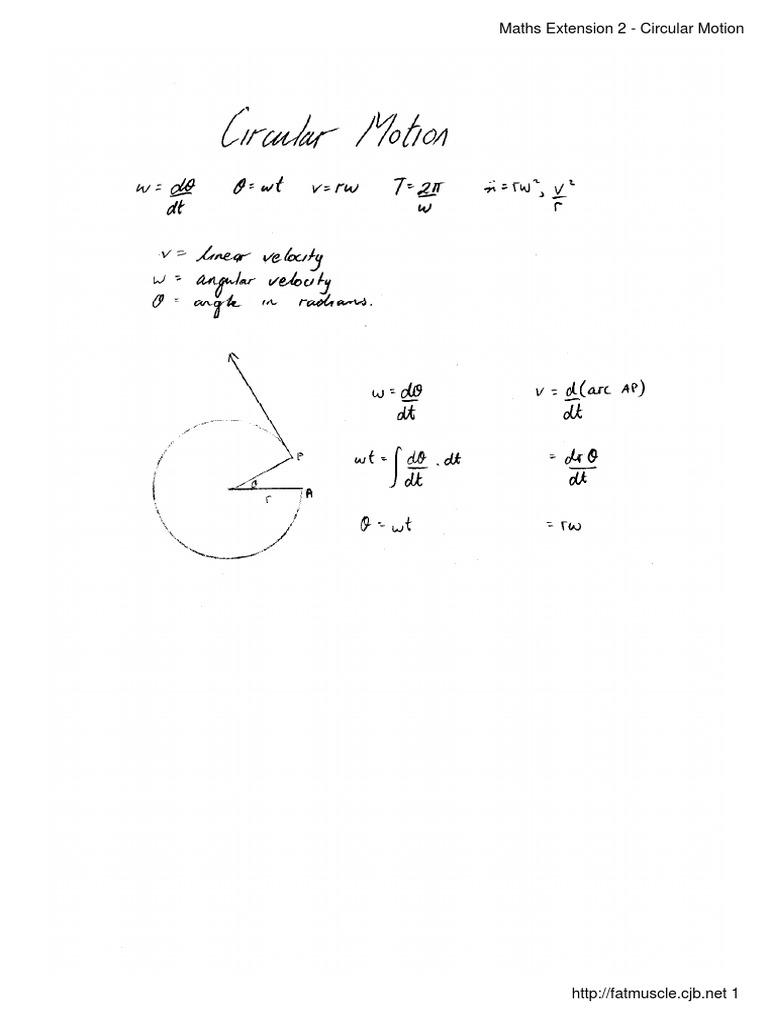 Maths Extension 2 - Circular Motion
Circular Motion
w = dθ/dt θ = wt v = rw T = 2π/w ẍ = rw², v²/r
v = linear velocity
w = angular velocity
θ = angle in radians.
w = dθ/dt v = d(arc AP)/dt
P
wt = ∫ dθ/dt . dt = drθ/dt
θ
r A
θ = wt = rw
http://fatmuscle.cjb.net 1